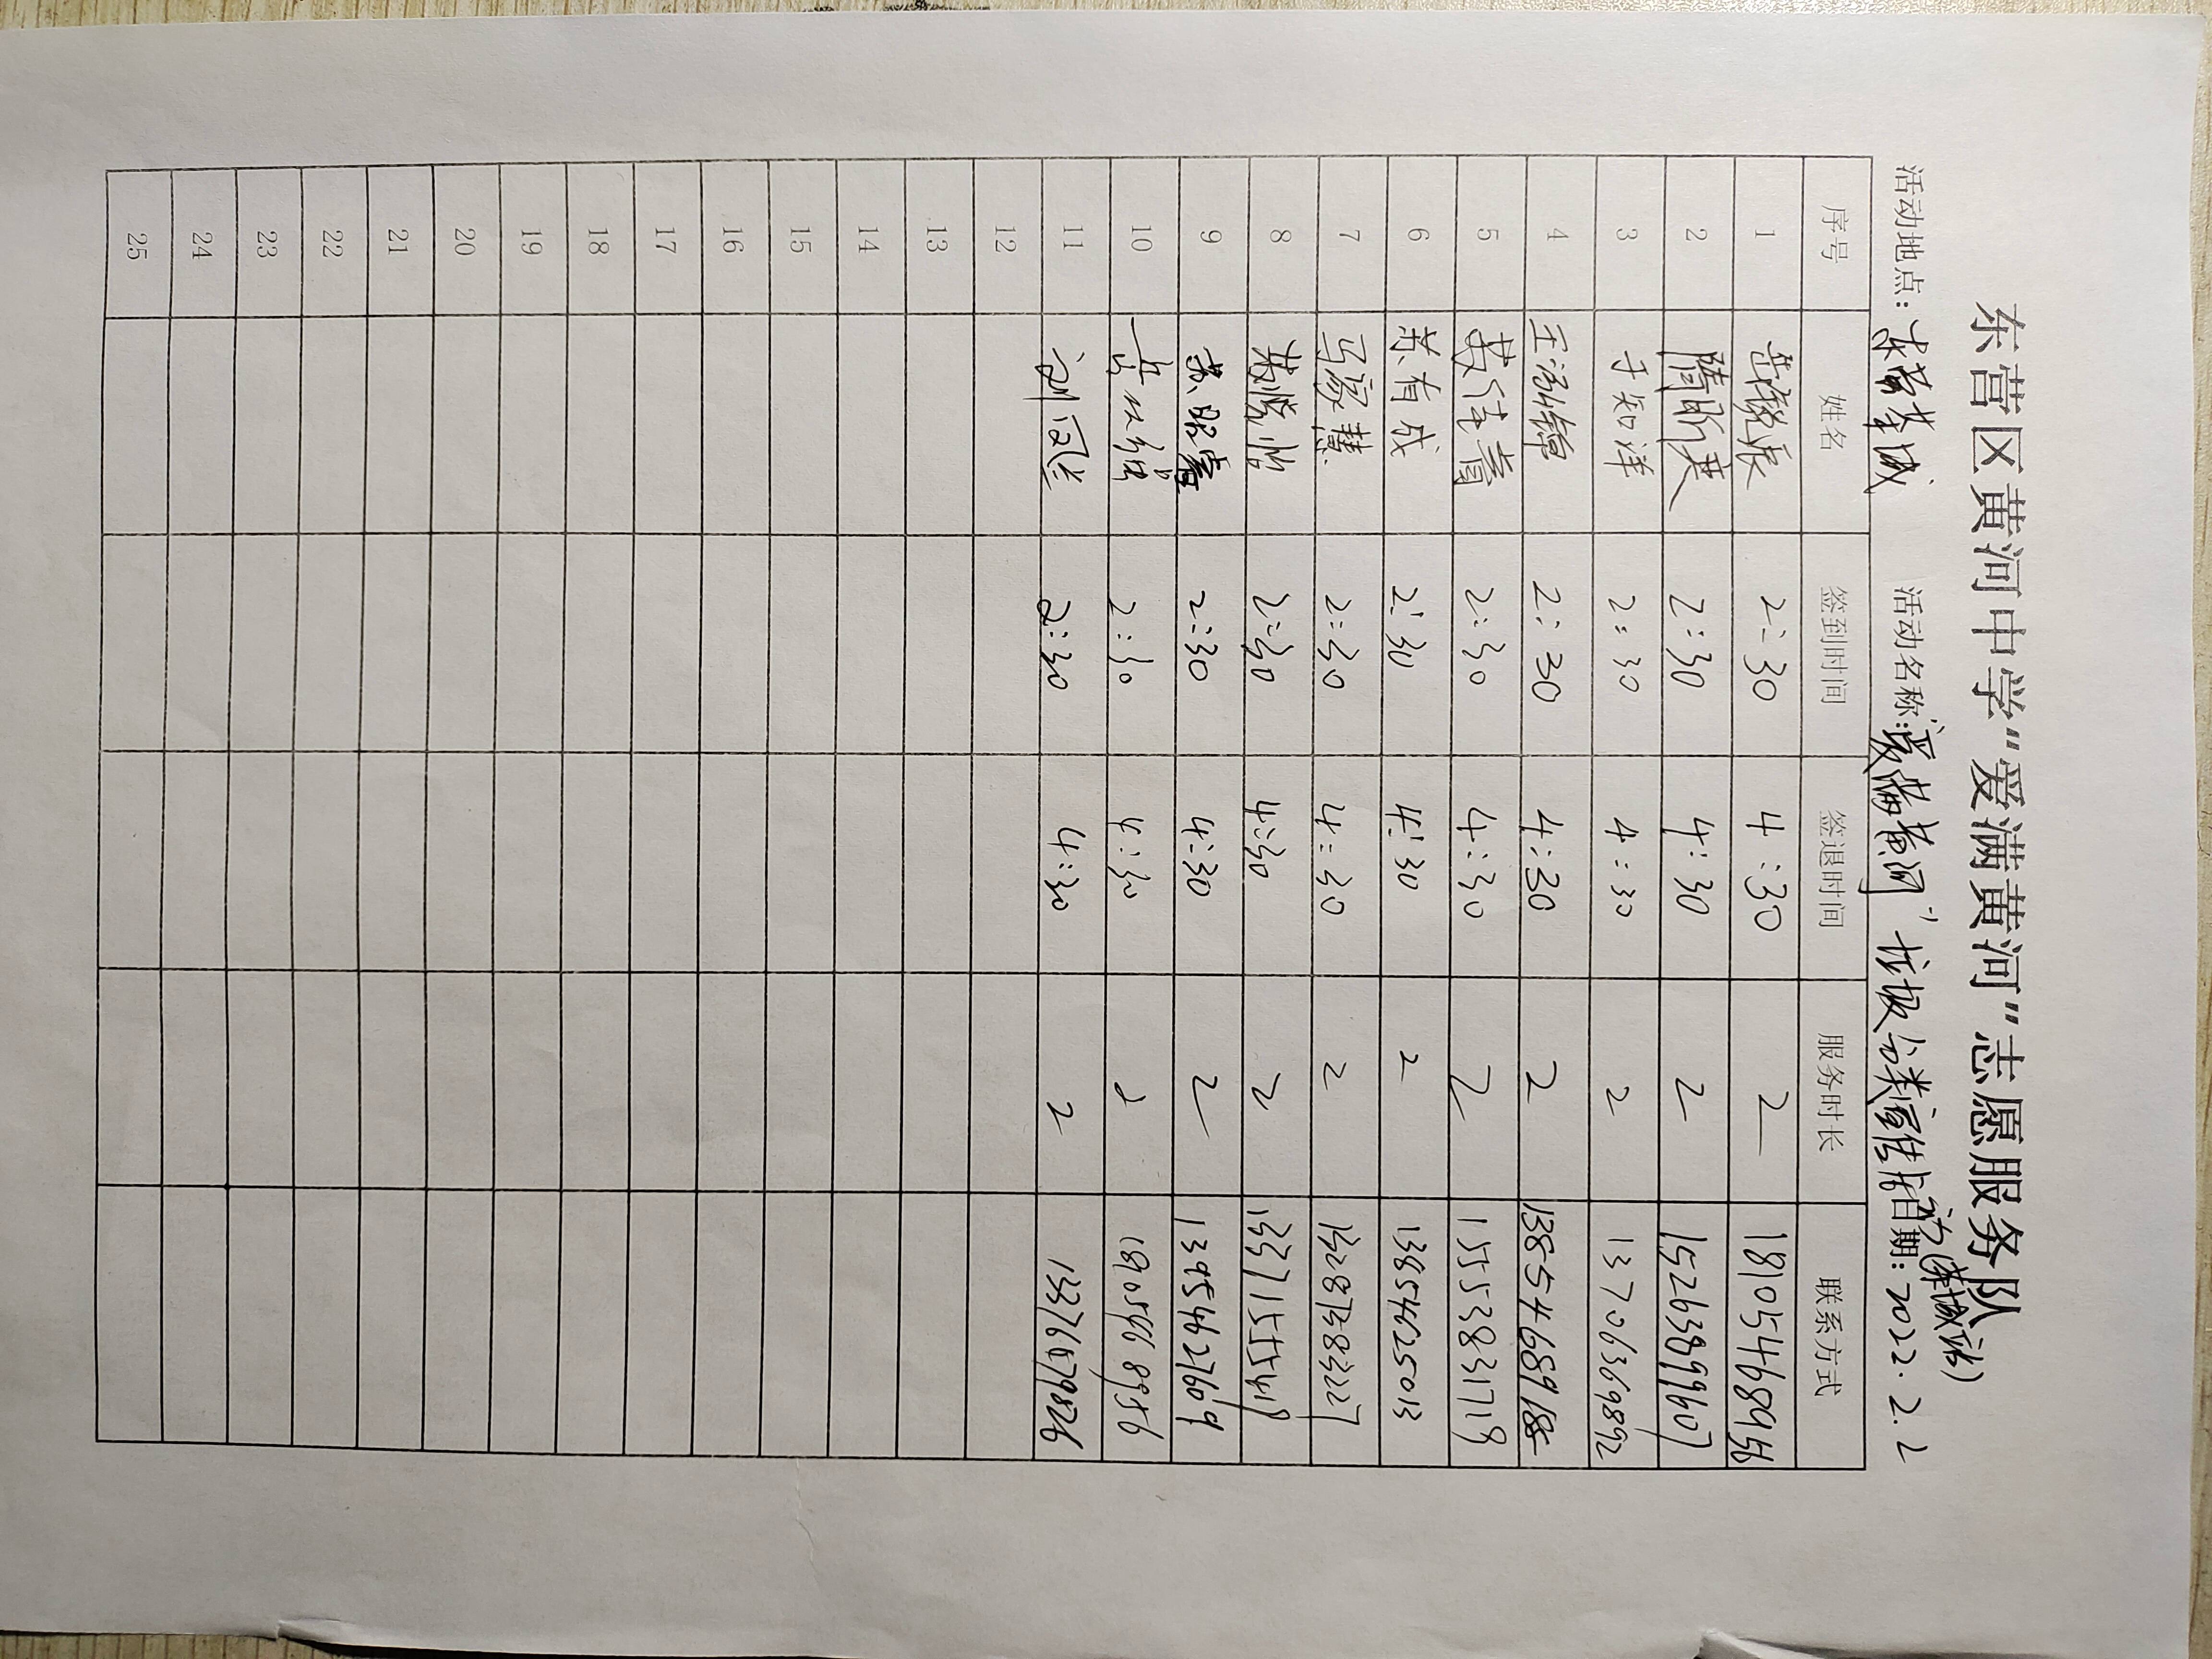 东营区黄河中学"爱满黄河"志愿服务队
活动地点: 东营莘城 活动名称: "爱满黄河"垃圾分类宣传活动(莘城站) 日期: 2022.2.2
序号 姓名 签到时间 签退时间 服务时长 联系方式
1 2:30 4:30 2 18105468956
2 2:30 4:30 2 15263899607
3 于知洋 2:30 4:30 2 13706369892
4 2:30 4:30 2 13854689188
5 2:30 4:30 2 15553831718
6 苏有成 2:30 4:30 2 13854625013
7 马家慧 2:30 4:30 2
8 2:30 4:30 2
9 2:30 4:30 2 13954627609
10 2:30 4:30 2 18905468956
11 2:30 4:30 2
12
13
14
15
16
17
18
19
20
21
22
23
24
25